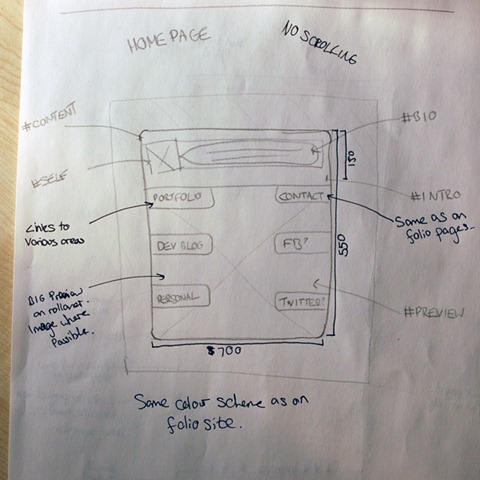 HOMEPAGE
NO SCROLLING
#CONTENT
#BIO
#SELF
150
#INTRO
PORTFOLIO
CONTACT
Links to
various areas
Same as on
folio pages.
DEV BLOG
FB?
550
BIG Preview
on rollover.
Image where
Possible.
PERSONAL
TWITTER?
#PREVIEW
700
Same colour scheme as on
folio site.